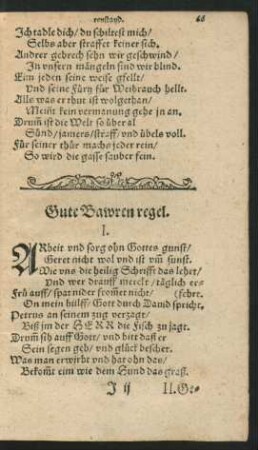 renstand. 66
Ich tadle dich/ du schiltest mich/
Selbs aber straffet keiner sich.
Andrer gebrech sehn wir geschwind/
In vnsern mängeln sind wir blind.
Eim jeden seine weise gfellt/
Vnd seine Fürtz für Weihrauch hellt.
Alls was er thut ist wolgethan/
Meint kein vermanung gehe jn an.
Drum̃ ist die Welt so über al
Sünd/ jamers/ straff/ vnd übels voll.
Für seiner thür machs jeder rein/
So wird die gasse sauber fein.
Gute Bawren regel.
I.
ARbeit vnd sorg ohn Gottes gunst/
Geret nicht wol vnd ist vm̃ sunst.
Wie vns die heilig Schrifft das lehrt/
Vnd wer drauff merckt/ täglich er-
Frü auff/ spat nider from̃et nicht/ (fehrt.
On mein hülff/ Gott durch Dauid spricht.
Petrus an seinem zug verzagt/
Biß jm der HERR die Fisch zu jagt.
Drum̃ sih auff Gott/ vnd bitt daß er
Sein segen geb/ vnd glück bescher.
Was man erwirbt vnd hat ohn das/
Bekom̃t eim wie dem Hund das graß.
I ij II. Ge-